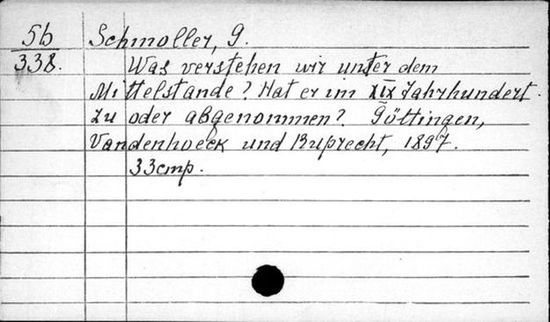 5b Schmoller, G.
338. Was verstehen wir unter dem
Mittelstande? Hat er im XIX Jahrhundert
zu oder abgenommen? Göttingen,
Vandenhoeck und Ruprecht, 1897.
33 стр.